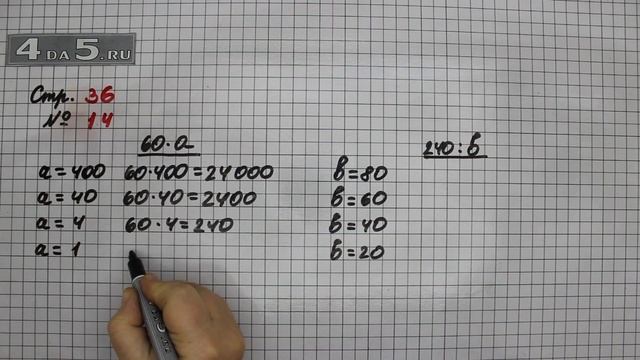 4DA5.RU
Стр. 36
№ 14
60·a 240:b
a=400 60·400=24000 b=80
a=40 60·40=2400 b=60
a=4 60·4=240 b=40
a=1 b=20